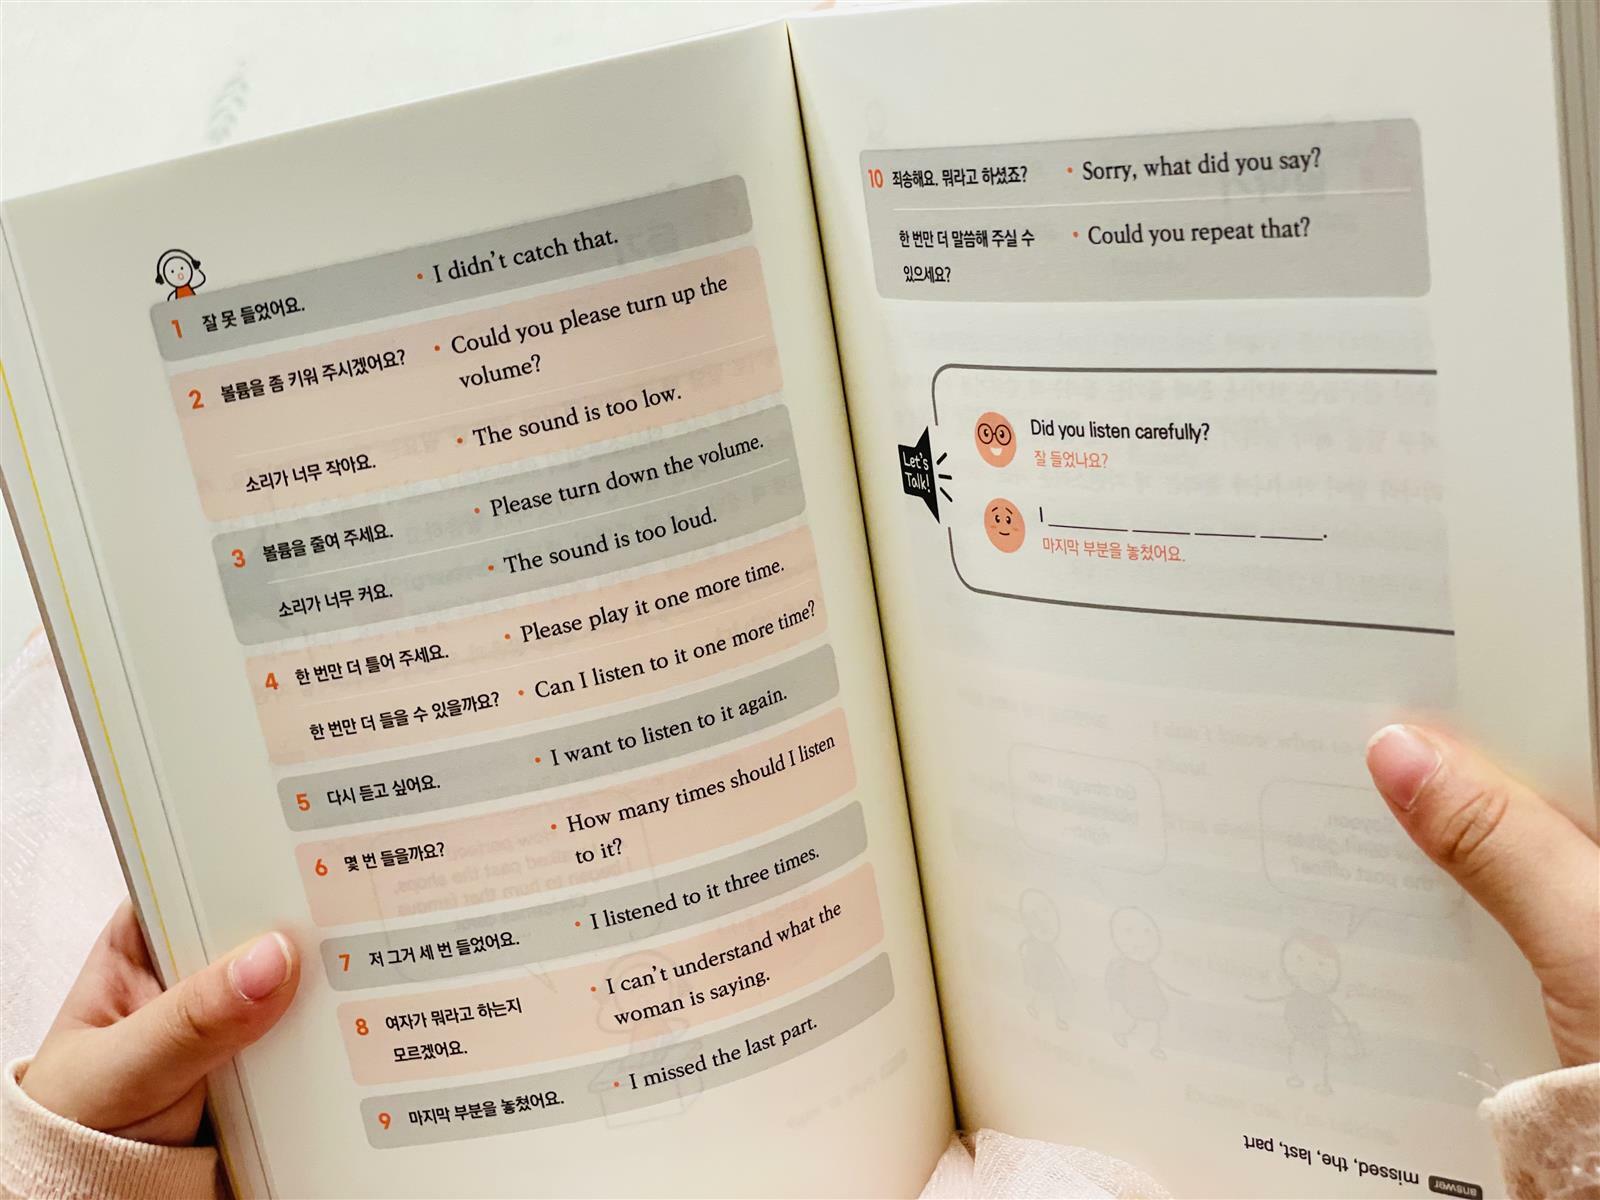 1 잘 못 들었어요. • I didn't catch that.
2 볼륨을 좀 키워 주시겠어요? • Could you please turn up the
volume?
소리가 너무 작아요. • The sound is too low.
3 볼륨을 줄여 주세요. • Please turn down the volume.
소리가 너무 커요. • The sound is too loud.
4 한 번만 더 틀어 주세요. • Please play it one more time.
한 번만 더 들을 수 있을까요? • Can I listen to it one more time?
5 다시 듣고 싶어요. • I want to listen to it again.
6 몇 번 들을까요? • How many times should I listen
to it?
7 저 그거 세 번 들었어요. • I listened to it three times.
8 여자가 뭐라고 하는지 • I can't understand what the
모르겠어요. woman is saying.
9 마지막 부분을 놓쳤어요. • I missed the last part.
10 죄송해요. 뭐라고 하셨죠? • Sorry, what did you say?
한 번만 더 말씀해 주실 수 • Could you repeat that?
있으세요?
Let's
Talk!
Did you listen carefully?
잘 들었나요?
I ______ ______ ______ ______.
마지막 부분을 놓쳤어요.
answer missed, the, last, part